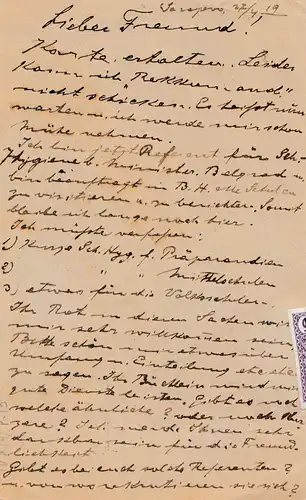 Sarajevo, 27/4 19
Lieber Freund!
Karte erhalten. Leider
kann ich "Rekkur... and"
nicht schicken. Es heißt nur
warten u. ich werde mir schon
Mühe nehmen.
Ich bin jetzt Referent für Sch.-
Hygiene b. Minister. Belgrad u.
bin beauftragt in B. H. alle Schulen
zu visitieren u. zu berichten. Somit
bleibe ich lange noch hier.
Ich müßte verfassen:
1) Kurze Sch. Hyg. f. Präparandien
2) " " " Mittelschulen
3) etwas für die Volksschulen.
Ihr Rat in diesen Sachen wird
mir sehr willkommen sein
Bitte schön mir etwas über
Umfang u. Einteilung
zu sagen. Ihr Büchlein wird mir
gute Dienste leisten. Gibt es noch
welche ähnliche? oder noch kür-
zere? Ich werde Ihnen sehr
dankbar sein für die Freund-
lichkeit.
Gibt es bei euch solche Referenten?
u. von wo rekrutieren sie sich?